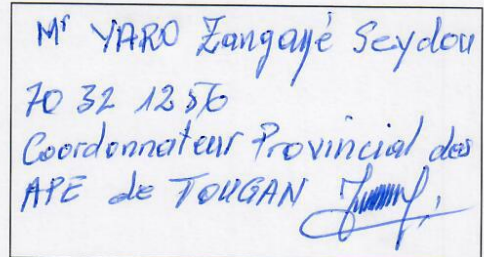 Mr YARO Zangayé Seydou
70 32 12 56
Coordonnateur Provincial des
APE de TOUGAN